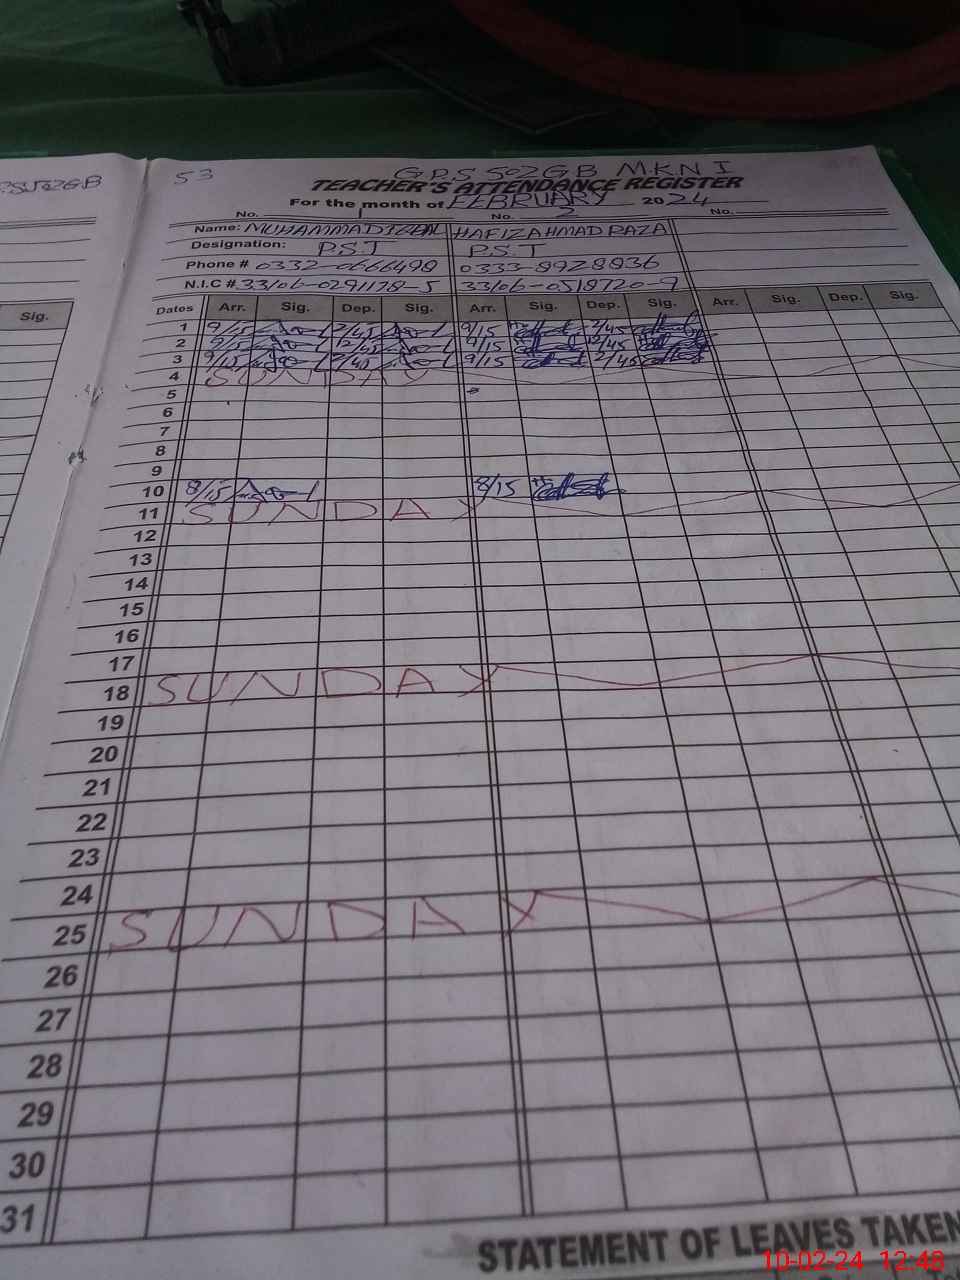 53
G.P.S 502GB M.K.N I
TEACHER'S ATTENDANCE REGISTER
For the month of FEBRUARY 2024
No. 1 No. 2 No.
Name: MUHAMMAD HAFIZ AHMAD RAZA
Designation: P.S.T P.S.T
Phone # 0332-0666498 0333-8928836
N.I.C # 33106-0291178-5 33106-0518720-9
Sig.
Dates Arr. Sig. Dep. Sig. Arr. Sig. Dep. Sig. Arr. Sig. Dep. Sig.
1 9/15 2/45 9/15 2/45
2 9/15 12/45 9/15 12/45
3 9/15 2/45 9/15 2/45
4 SUNDAY
5
6
7
8
9
10 8/15 8/15
11 SUNDAY
12
13
14
15
16
17
18 SUNDAY
19
20
21
22
23
24
25 SUNDAY
26
27
28
29
30
31
STATEMENT OF LEAVES TAKEN
10-02-24 12:48